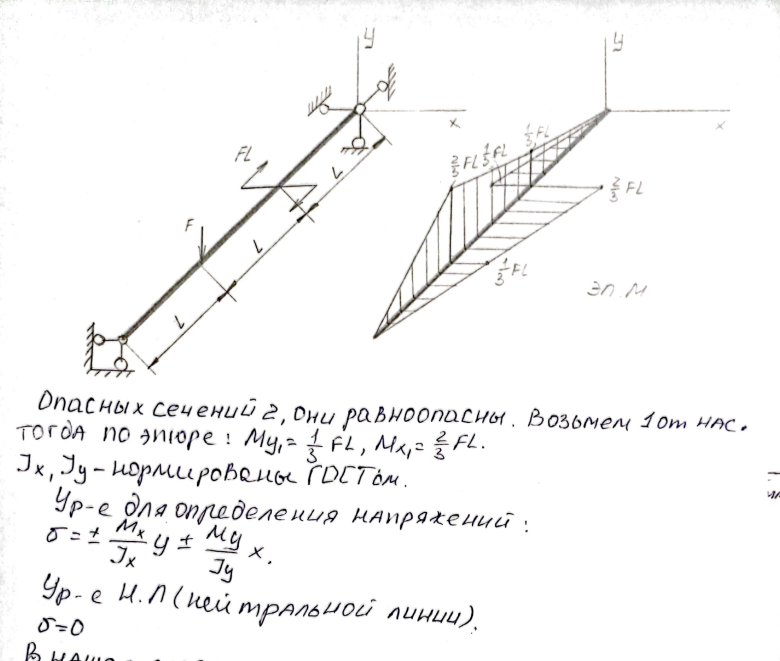 y
y
x
x
FL
F
L
L
L
2/3 FL
1/3 FL
1/3 FL
2/3 FL
1/3 FL
Эп. М
Опасных сечений 2, они равноопасны. Возьмем 1 от нас.
тогда по эпюре: My₁ = 1/3 FL, Mx₁ = 2/3 FL.
Jx, Jy – нормированы ГОСТом.
Ур-е для определения напряжений:
σ = ± Mx/Jx y ± My/Jy x.
Ур-е Н.Л (нейтральной линии).
σ=0
В наш